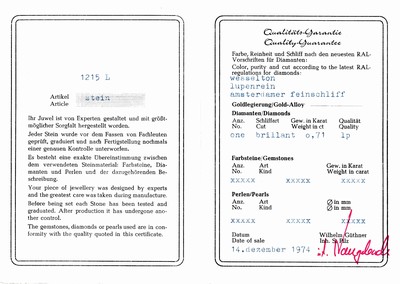 1215 L
Artikel
Article
stein
Ihr Juwel ist von Experten gestaltet und mit größt-
möglicher Sorgfalt hergestellt worden.
Jeder Stein wurde vor dem Fassen von Fachleuten
geprüft, graduiert und nach Fertigstellung nochmals
einer genauen Kontrolle unterworfen.
Es besteht eine exakte Übereinstimmung zwischen
dem verwendeten Steinmaterial: Farbsteine, Dia-
manten und Perlen und der dazugehörenden Be-
schreibung.
Your piece of jewellery was designed by experts
and the greatest care was taken during manufacture.
Before being set each Stone has been tested and
graduated. After production it has undergone ano-
ther control.
The gemstones, diamonds or pearls used are in con-
formity with the quality quoted in this certificate.
Qualitäts-Garantie
Quality-Guarantee
Farbe, Reinheit und Schliff nach den neuesten RAL-
Vorschriften für Diamanten:
Color, purity and cut according to the latest RAL-
regulations for diamonds:
wesselton
lupenrein
amsterdamer feinschliff
Goldlegierung/Gold-Alloy
Diamanten/Diamonds
Anz. Schliffart Gew. in Karat Qualität
No. Cut Weight in ct Quality
one brillant 0,71 lp
Farbsteine/Gemstones
Anz. Art Gew. in Karat
No. Kind Weight in carat
xxxxx xxxxx xxxxx
Perlen/Pearls
Anz. Art Ø in mm
No. Kind Ø in mm
xxxxx xxxxx xxxxx
Datum Wilhelm Güthner
Date of sale Inh. S.
14.dezember 1974